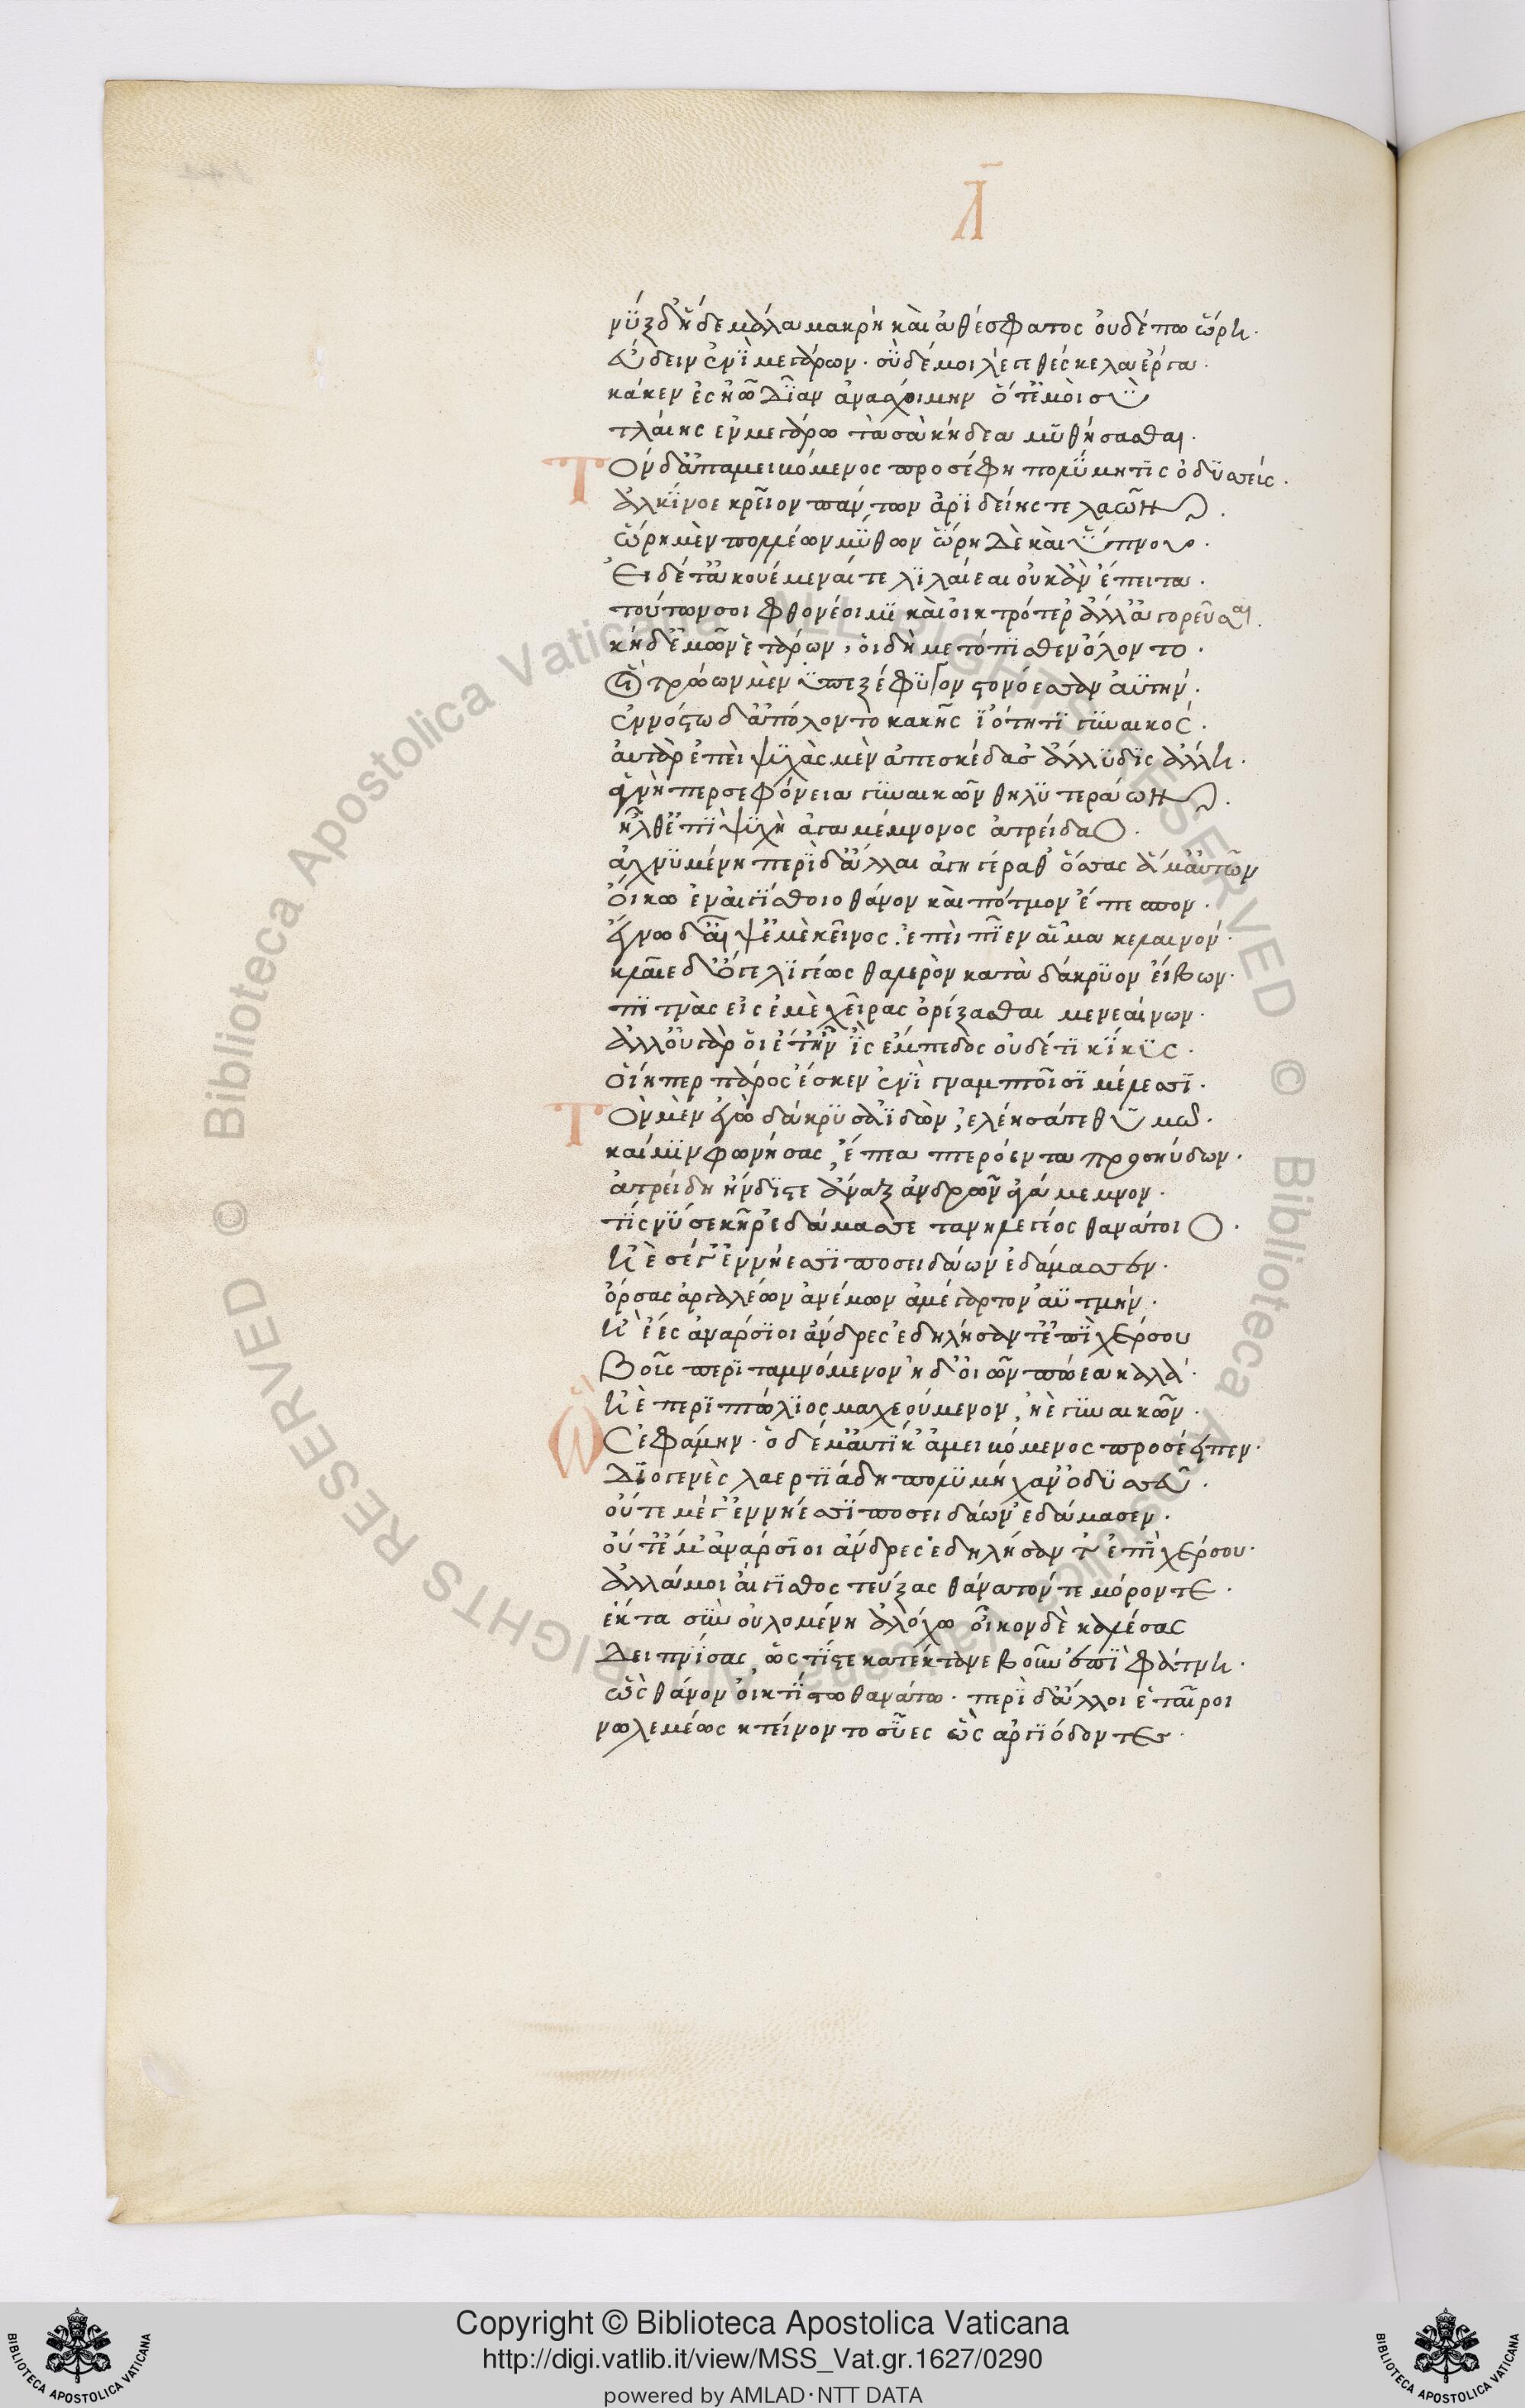 Λ̄
νὺξ δ' ἥδε μάλα μακρὴ καὶ ἀθέσφατος οὐδέπω ὥρη.
εὕδειν ἐνὶ μεγάρω. σὺ δέ μοι λέγε θέσκελα ἔργα.
καί κεν ἐς ἠῶ δῖαν ἀνασχοίμην ὅτέ μοι σὺ
τλαίης ἐν μεγάρω τὰ σὰ κήδεα μυθήσασθαι.
Τὸν δ' ἀπαμειβόμενος προσέφη πολύμητις ὀδυσσεύς.
ἀλκίνοε κρεῖον πάντων ἀριδείκετε λαῶν.
ὥρη μὲν πολλέων μύθων ὥρη δὲ καὶ ὕπνου.
εἰ δέ τ' ἀκουέμεναί γε λιλαίεαι οὐκ ἂν ἔπειτα.
τούτων σοι φθονέοιμι καὶ οἰκτρότερ' ἄλλ' ἀγορεῦσαι.
κήδε' ἐμῶν ἑτάρων, οἳ δὴ μετόπισθεν ὄλοντο.
οἳ τρώων μὲν ὑπεξέφυγον στονόεσσαν ἀϋτήν.
ἐν νόστω δ' ἀπόλοντο κακῆς ἰότητι γυναικός.
αὐτὰρ ἐπεὶ ψυχὰς μὲν ἀπεσκέδασ' ἄλλυδις ἄλλη.
ἁγνὴ περσεφόνεια γυναικῶν θηλυτεράων.
ἦλθε δ' ἐπὶ ψυχὴ ἀγαμέμνονος ἀτρείδαο.
ἀχνυμένη περὶ δ' ἄλλαι ἀγηγέραθ' ὅσσας ἅμ' αὐτῶ
οἴκω ἐν αἰγίσθοιο θάνον καὶ πότμον ἐπέσπον.
ἔγνω δ' αἶψ' ἐμὲ κεῖνος ἐπεὶ πίεν αἷμα κελαινόν.
κλαῖε δ' ὅγε λιγέως θαλερὸν κατὰ δάκρυον εἴβων.
πιτνὰς εἰς ἐμὲ χεῖρας ὀρέξασθαι μενεαίνων.
ἀλλ' οὐ γάρ οἱ ἔτ' ἦν ἲς ἔμπεδος οὐδέ τι κίκυς.
οἵη περ πάρος ἔσκεν ἐνὶ γναμπτοῖσι μέλεσσι.
Τὸν μὲν ἐγὼ δάκρυσα ἰδὼν, ἐλέησά τε θυμῶ.
καί μιν φωνήσας, ἔπεα πτερόεντα προσηύδων.
ἀτρείδη κύδιστε ἄναξ ἀνδρῶν ἀγάμεμνον.
τίς νύ σε κῆρ ἐδάμασσε τανηλεγέος θανάτοιο.
ἠὲ σέ γ' ἐν νήεσσι ποσειδάων ἐδάμασσεν.
ὄρσας ἀργαλέων ἀνέμων ἀμέγαρτον ἀϋτμήν.
ἠέ σ' ἀνάρσιοι ἄνδρες ἐδηλήσαντ' ἐπὶ χέρσου
βοῦς περιταμνόμενον ἠδ' οἰῶν πώεα καλά.
ἠὲ περὶ πτόλιος μαχεούμενον, ἠὲ γυναικῶν.
Ὣς ἐφάμην. ὁ δέ μ' αὐτίκ' ἀμειβόμενος προσέειπεν.
διογενὲς λαερτιάδη πολυμήχαν' ὀδυσσεῦ.
οὔτε μέ γ' ἐν νήεσσι ποσειδάων ἐδάμασεν.
οὔτέ μ' ἀνάρσιοι ἄνδρες ἐδηλήσαντ' ἐπὶ χέρσου.
ἀλλά μοι αἴγισθος τεύξας θάνατόν τε μόρον τε.
ἔκτα σὺν οὐλομένη ἀλόχω οἶκον δὲ καλέσας
δειπνίσας, ὥς τίς τε κατέκτανε βοῦν ἐπὶ φάτνη.
ὣς θάνον οἰκτίστω θανάτω. περὶ δ' ἄλλοι ἑταῖροι
νωλεμέως κτείνοντο σύες ὣς ἀργιόδοντες.
© Biblioteca Apostolica Vaticana ALL RIGHTS RESERVED © Biblioteca Apostolica Vaticana ALL RIGHTS RESERVED
Copyright © Biblioteca Apostolica Vaticana
http://digi.vatlib.it/view/MSS_Vat.gr.1627/0290
powered by AMLAD·NTT DATA
BIBLIOTECA APOSTOLICA VATICANA
BIBLIOTECA APOSTOLICA VATICANA